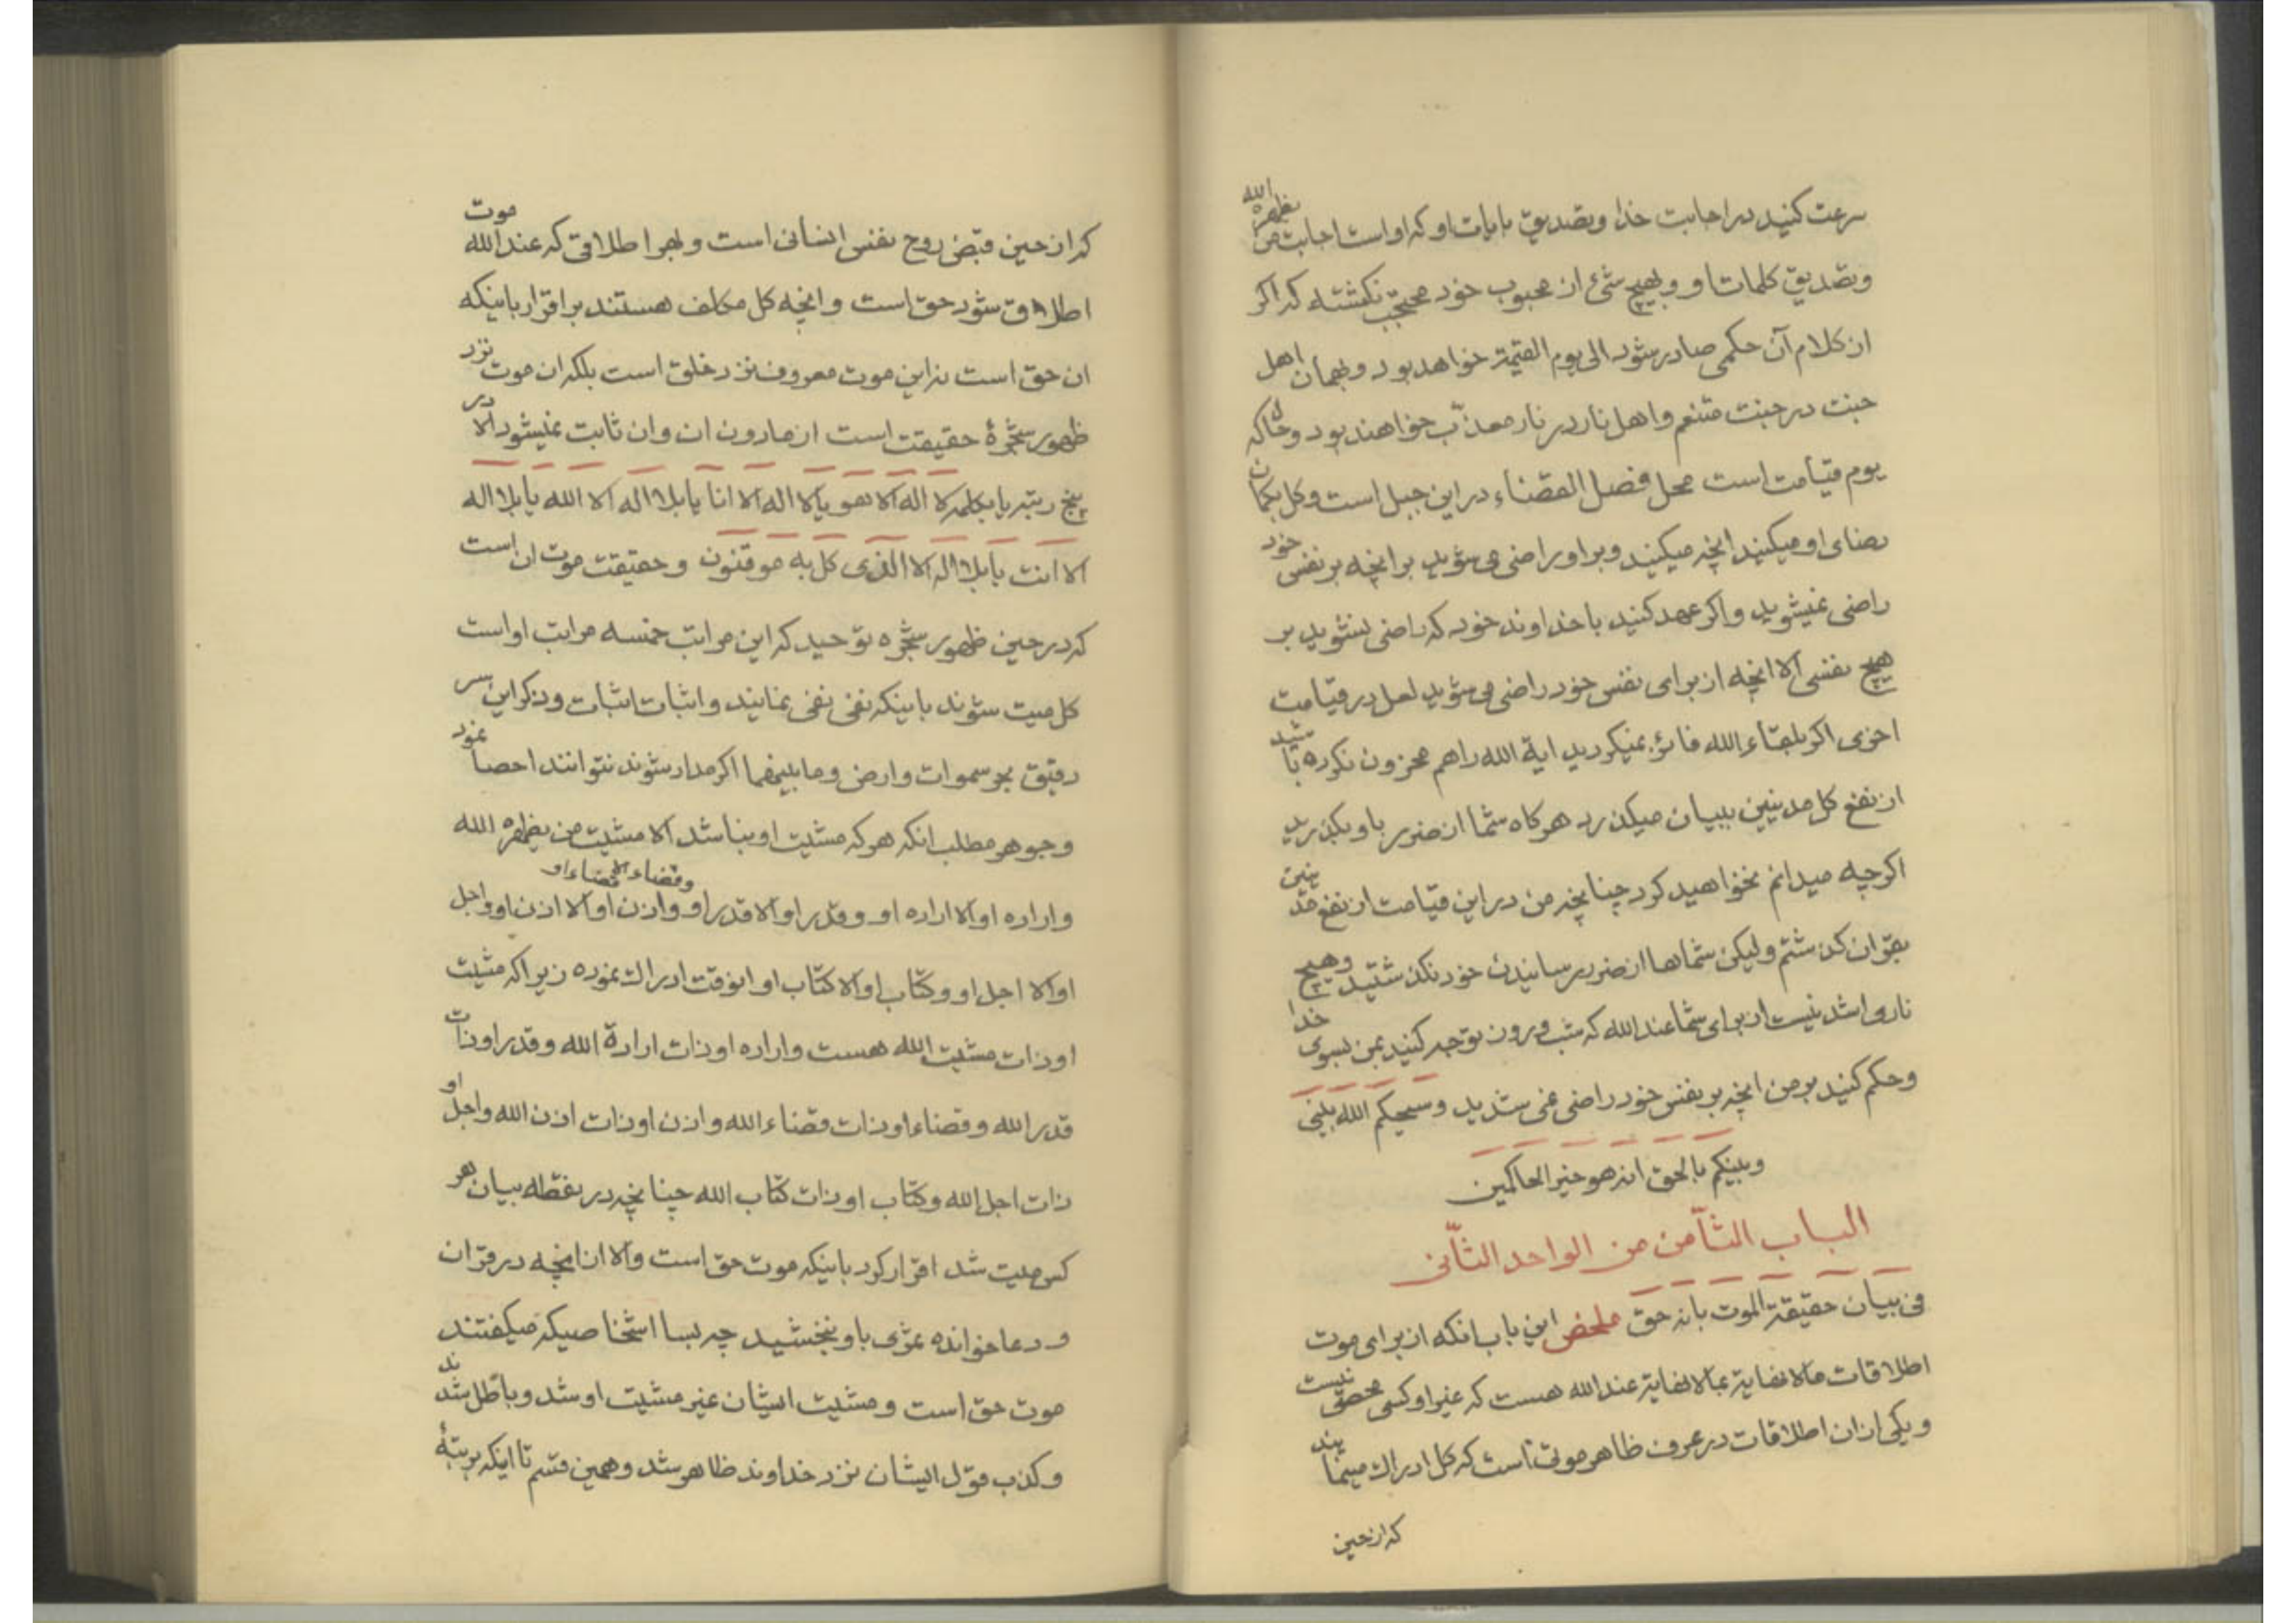 سرعت کنید در اجابت خدا و تصدیق بایات او که او است اجابت من یظهره الله
و تصدیق کلمات او و بهیچ شیٔ از محبوب خود محتجب نگشته که اگر
از کلام آن حکمی صادر شود الی یوم القیمة خواهد بود و بهمان اهل
جنت در جنت متنعم و اهل نار در نار معذّب خواهند بود و حال که
یوم قیامت است محل فصل القضاء در این جبل است و کل بگمان
رضای او میکنند انچه میکنند و بر او راضی می شوید بر انچه بر نفس خود
راضی نمیشوید و اگر عهد کنید با خداوند خود که راضی نشوید بر
هیچ نفسی الا انچه از برای نفس خود راضی می شوید لعل در قیامت
اخری اگر بلقاء الله فائز نمیگردید ایة الله را هم محزون نکرده باشید
از نفع کل مدینین ببیان میگذرد هرگاه شما از ضرر باو بگذرید
اگرچه میدانم نخواهید کرد چنانچه من در این قیامت از نفع مدینین
بقرآن گذشتم ولیکن شماها از ضرر رسانیدن خود نگذشتید و هیچ
ناری اشد نیست از برای شما عند الله که شب و روز توجه کنید بمن بسوی خدا
و حکم کنید بر من انچه بر نفس خود راضی نمی شدید و سیحکم الله بینی
و بینکم بالحق انه هو خیر الحاکمین
الباب الثّامن من الواحد الثّانی
فی بیان حقیقة الموت بانه حق ملخص این باب انکه از برای موت
اطلاقات مالانهایة بمالانهایة عند الله هست که غیر او کسی محصی نیست
و یکی از ان اطلاقات در عرف ظاهر موتی است که کل ادراک مینمایند
که از حین
که از حین قبض روح نفس انسانی است و بهر اطلاقی که عند الله موت
اطلاق شود حق است و انچه کل مکلف هستند بر اقرار باینکه
ان حق است نه این موت معروف نزد خلق است بلکه ان موت نزد
ظهور شجرهٔ حقیقت است از مادون ان و ان ثابت نمیشود الا در
پنج رتبه یا بکلمه لا اله الا هو یا لا اله الا انا یا بلا اله الا الله یا بلا اله
الا انت یا بلا اله الا الذی کل به موقنون و حقیقت موت ان است
که در حین ظهور شجره توحید که این مراتب خمسه مراتب او است
کل میت شوند باینکه نفی نفی نمایند و اثبات اثبات و ذکر این سر
دقیق بحر سموات و ارض و ما بینهما اگر مداد شوند نتوانند احصا نمود
و جوهر مطلب انکه هر که مشیت او نباشد الا مشیت من یظهره الله
و اراده او الا اراده او و قدر او الا قدر او و قضاء او الا قضاء او و اذن او الا اذن او و اجل
او الا اجل او و کتاب او الا کتاب او انوقت ادراک نموده زیرا که مشیت
او ذات مشیت الله هست و اراده او ذات ارادة الله و قدر او ذات
قدر الله و قضاء او ذات قضاء الله و اذن او ذات اذن الله و اجل او
ذات اجل الله و کتاب او ذات کتاب الله چنانچه در نقطه بیان هر
کس میت شد اقرار کرد باینکه موت حق است والا ان انچه در قران
و دعا خوانده ثمری باو نبخشید چه بسا اشخاصیکه میگفتند
موت حق است و مشیت ایشان غیر مشیت او شد و باطل شدند
و کذب قول ایشان نزد خداوند ظاهر شد و همین قسم تا اینکه برتبهٔ